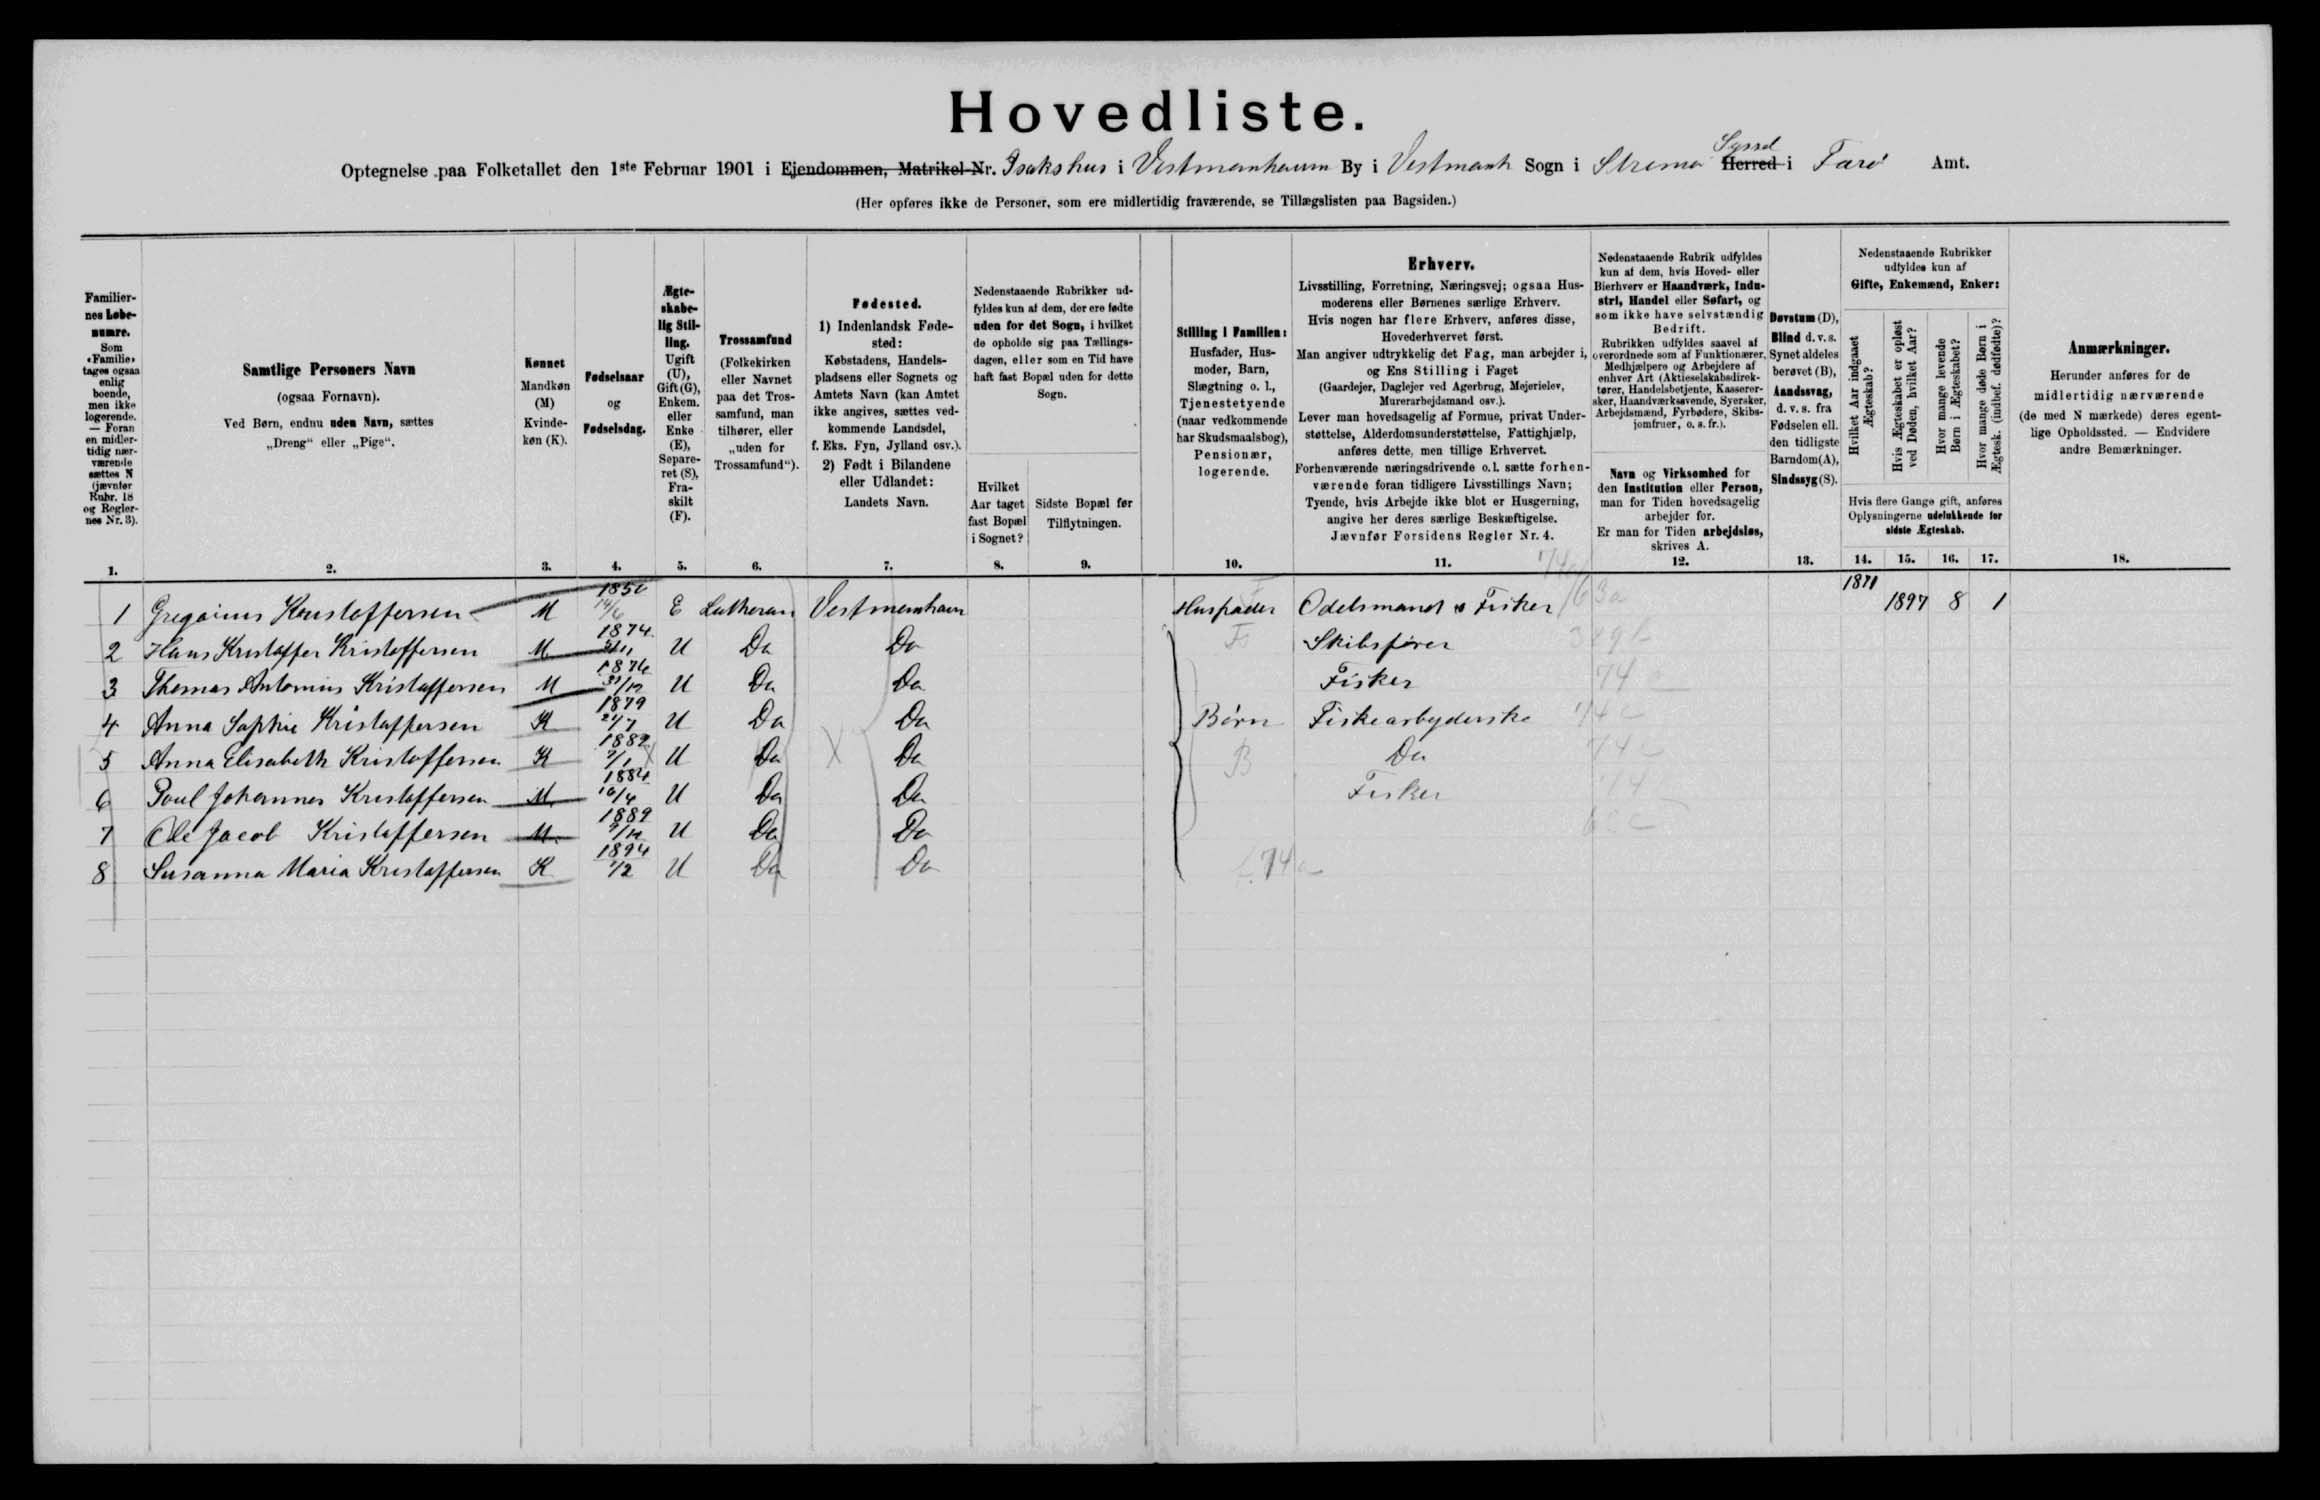 Hovedliste.
Optegnelse paa Folketallet den 1ste Februar 1901 i Ejendommen, Matrikel-Nr. Isakshus i Vestmanhavn By i Vestmanh Sogn i Strømø Syssel Herred i Færø Amt.
(Her opføres ikke de Personer, som ere midlertidig fraværende, se Tillægslisten paa Bagsiden.)
Familiernes Løbenumre. Som «Familie» tages ogsaa enlig boende, men ikke logerende. — Foran en midlertidig nærværende sættes N (jævnfør Rubr. 18 og Reglernes Nr. 3).
Samtlige Personers Navn (ogsaa Fornavn). Ved Børn, endnu uden Navn, sættes „Dreng“ eller „Pige“.
Kønnet Mandkøn (M) Kvindekøn (K).
Fødselsaar og Fødselsdag.
Ægteskabelig Stilling. Ugift (U), Gift (G), Enkem. eller Enke (E), Separeret (S), Fraskilt (F).
Trossamfund (Folkekirken eller Navnet paa det Trossamfund, man tilhører, eller „uden for Trossamfund“).
Fødested. 1) Indenlandsk Fødested: Købstadens, Handelspladsens eller Sognets og Amtets Navn (kan Amtet ikke angives, sættes vedkommende Landsdel, f. Eks. Fyn, Jylland osv.). 2) Født i Bilandene eller Udlandet: Landets Navn.
Nedenstaaende Rubrikker udfyldes kun af dem, der ere fødte uden for det Sogn, i hvilket de opholde sig paa Tællingsdagen, eller som en Tid have haft fast Bopæl uden for dette Sogn.
Hvilket Aar taget fast Bopæl i Sognet?
Sidste Bopæl før Tilflytningen.
Stilling i Familien: Husfader, Husmoder, Barn, Slægtning o. l., Tjenestetyende (naar vedkommende har Skudsmaalsbog), Pensionær, logerende.
Erhverv.
Livsstilling, Forretning, Næringsvej; ogsaa Husmoderens eller Børnenes særlige Erhverv.
Hvis nogen har flere Erhverv, anføres disse, Hovederhvervet først.
Man angiver udtrykkelig det Fag, man arbejder i, og Ens Stilling i Faget
(Gaardejer, Daglejer ved Agerbrug, Mejerielev, Murerarbejdsmand osv.).
Lever man hovedsagelig af Formue, privat Understøttelse, Alderdomsunderstøttelse, Fattighjælp, anføres dette, men tillige Erhvervet.
Forhenværende næringsdrivende o. l. sætte forhenværende foran tidligere Livsstillings Navn;
Tyende, hvis Arbejde ikke blot er Husgerning, angive her deres særlige Beskæftigelse.
Jævnfør Forsidens Regler Nr. 4.
Nedenstaaende Rubrik udfyldes kun af dem, hvis Hoved- eller Bierhverv er Haandværk, Industri, Handel eller Søfart, og som ikke have selvstændig Bedrift.
Rubrikken udfyldes saavel af overordnede som af Funktionærer, Medhjælpere og Arbejdere af enhver Art (Aktieselskabsdirektører, Handelsbetjente, Kasserersker, Haandværkssvende, Syersker, Arbejdsmænd, Fyrbødere, Skibsjomfruer, o. s. fr.).
Navn og Virksomhed for den Institution eller Person, man for Tiden hovedsagelig arbejder for.
Er man for Tiden arbejdsløs, skrives A.
Døvstum (D), Blind d. v. s. Synet aldeles berøvet (B), Aandssvag, d. v. s. fra Fødselen ell. den tidligste Barndom (A), Sindssyg (S).
Nedenstaaende Rubrikker udfyldes kun af Gifte, Enkemænd, Enker:
Hvilket Aar indgaaet Ægteskab?
Hvis Ægteskabet er opløst ved Døden, hvilket Aar?
Hvor mange levende Børn i Ægteskabet?
Hvor mange døde Børn i Ægtesk. (indbef. dødfødte)?
Hvis flere Gange gift, anføres Oplysningerne udelukkende for sidste Ægteskab.
Anmærkninger. Herunder anføres for de midlertidig nærværende (de med N mærkede) deres egentlige Opholdssted. — Endvidere andre Bemærkninger.
1. 2. 3. 4. 5. 6. 7. 8. 9. 10. 11. 12. 13. 14. 15. 16. 17. 18.
1 Gregorius Kristoffersen M 1850 14/6 E Lutheran Vestmanhavn Husfader Odelsmand & Fisker 63a 1871 1897 8 1
2 Hans Kristoffer Kristoffersen M 1874 U Do Do F Skibsfører
3 Thomas Antonius Kristoffersen M 1876 31/12 U Do Do Fisker 74
4 Anna Sophie Kristoffersen K 1879 21/7 U Do Do Børn Fiskearbejderske 74
5 Anna Elisabeth Kristoffersen K 1882 9/1 U Do X Do B Do 74
6 Poul Johannes Kristoffersen M 1884 16/4 U Do Do Fisker 74
7 Ole Jacob Kristoffersen M. 1889 9/12 U Do Do
8 Susanna Maria Kristoffersen K 1894 1/2 U Do Do 74